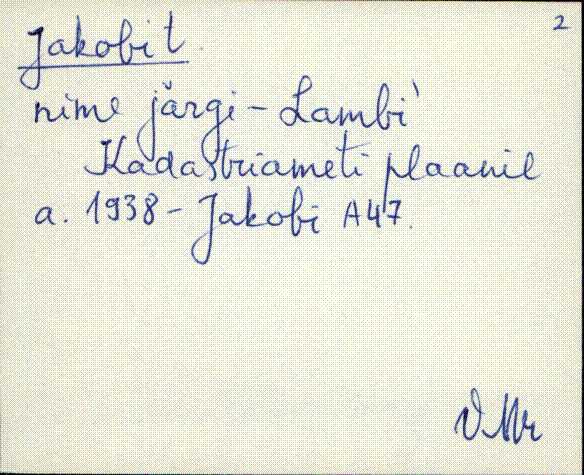 2
Jakobi t.
nime järgi - Lambi'
Kadastriameti plaanil
a. 1938 - Jakobi A47.